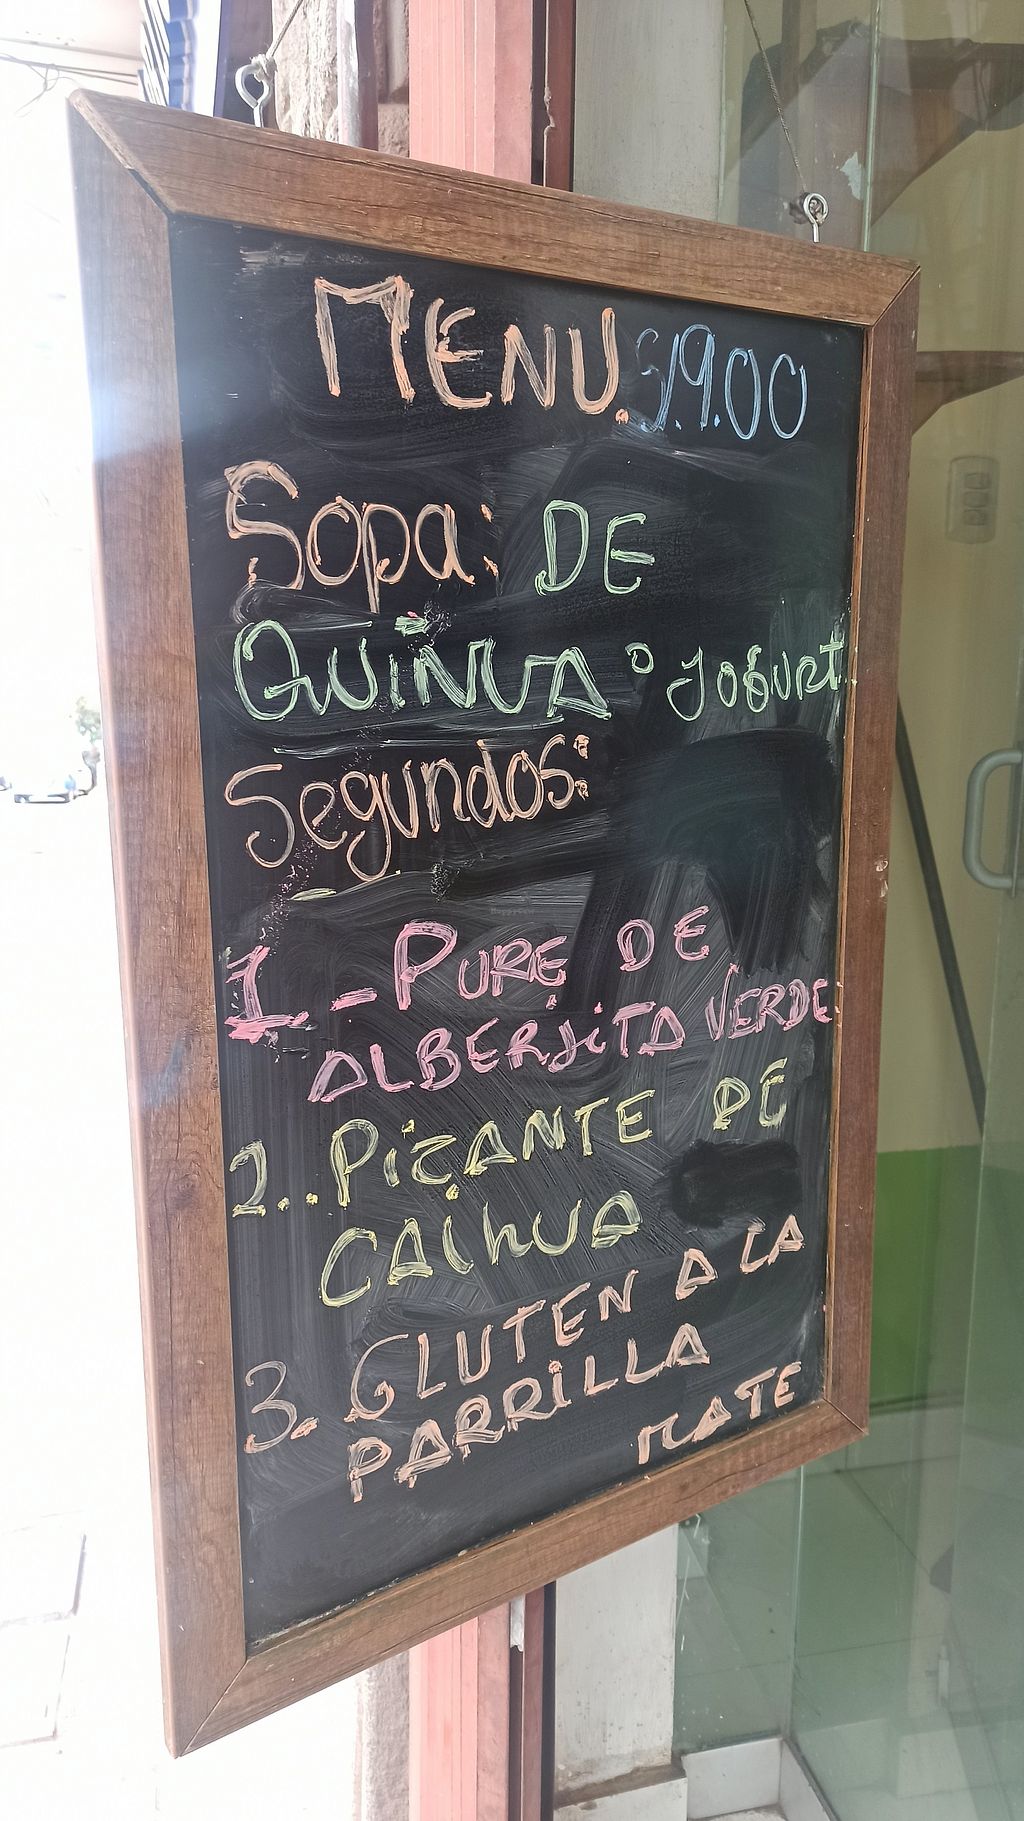 MENU. S/.9.00
Sopa: DE
QUINUA o JOGURT
Segundos:
1.- PURE DE
ALBERJITA VERDE
2.. PICANTE DE
CAIhUA
3. GLUTEN A LA
PARRILLA
MATE